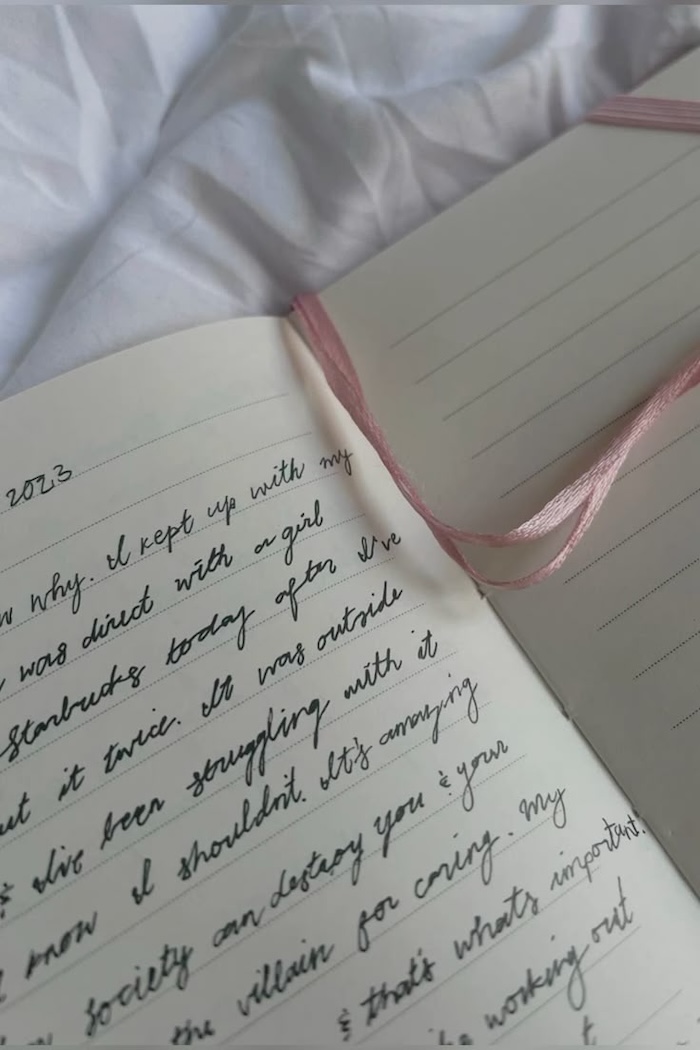 2023
why. I kept up with my
was direct with a girl
Starbucks today after I've
it twice. It was outside
& I've been struggling with it
know I shouldn't. It's amazing
society can destroy you & your
the villain for caring. My
& that's what's important.
working out